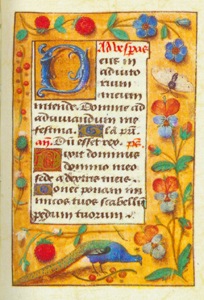 Ad vespas
Deus in
adiuto
rium
meum
intende. Domine ad
adiuvandum me
festina. Gl'a p'ri.
an. Dum esset rex. ps.
Dixit dominus
domino meo
sede a dextris meis.
Donec ponam ini
micos tuos scabellū
pedum tuorum